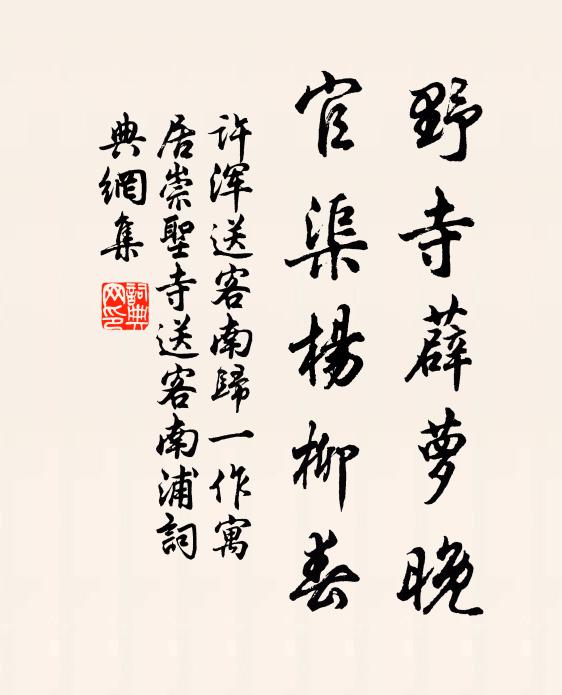 野寺薜萝晚
官渠楊柳春
许渾送客南歸一作寓
居崇聖寺送客南浦詞
典網集
詞典
网印